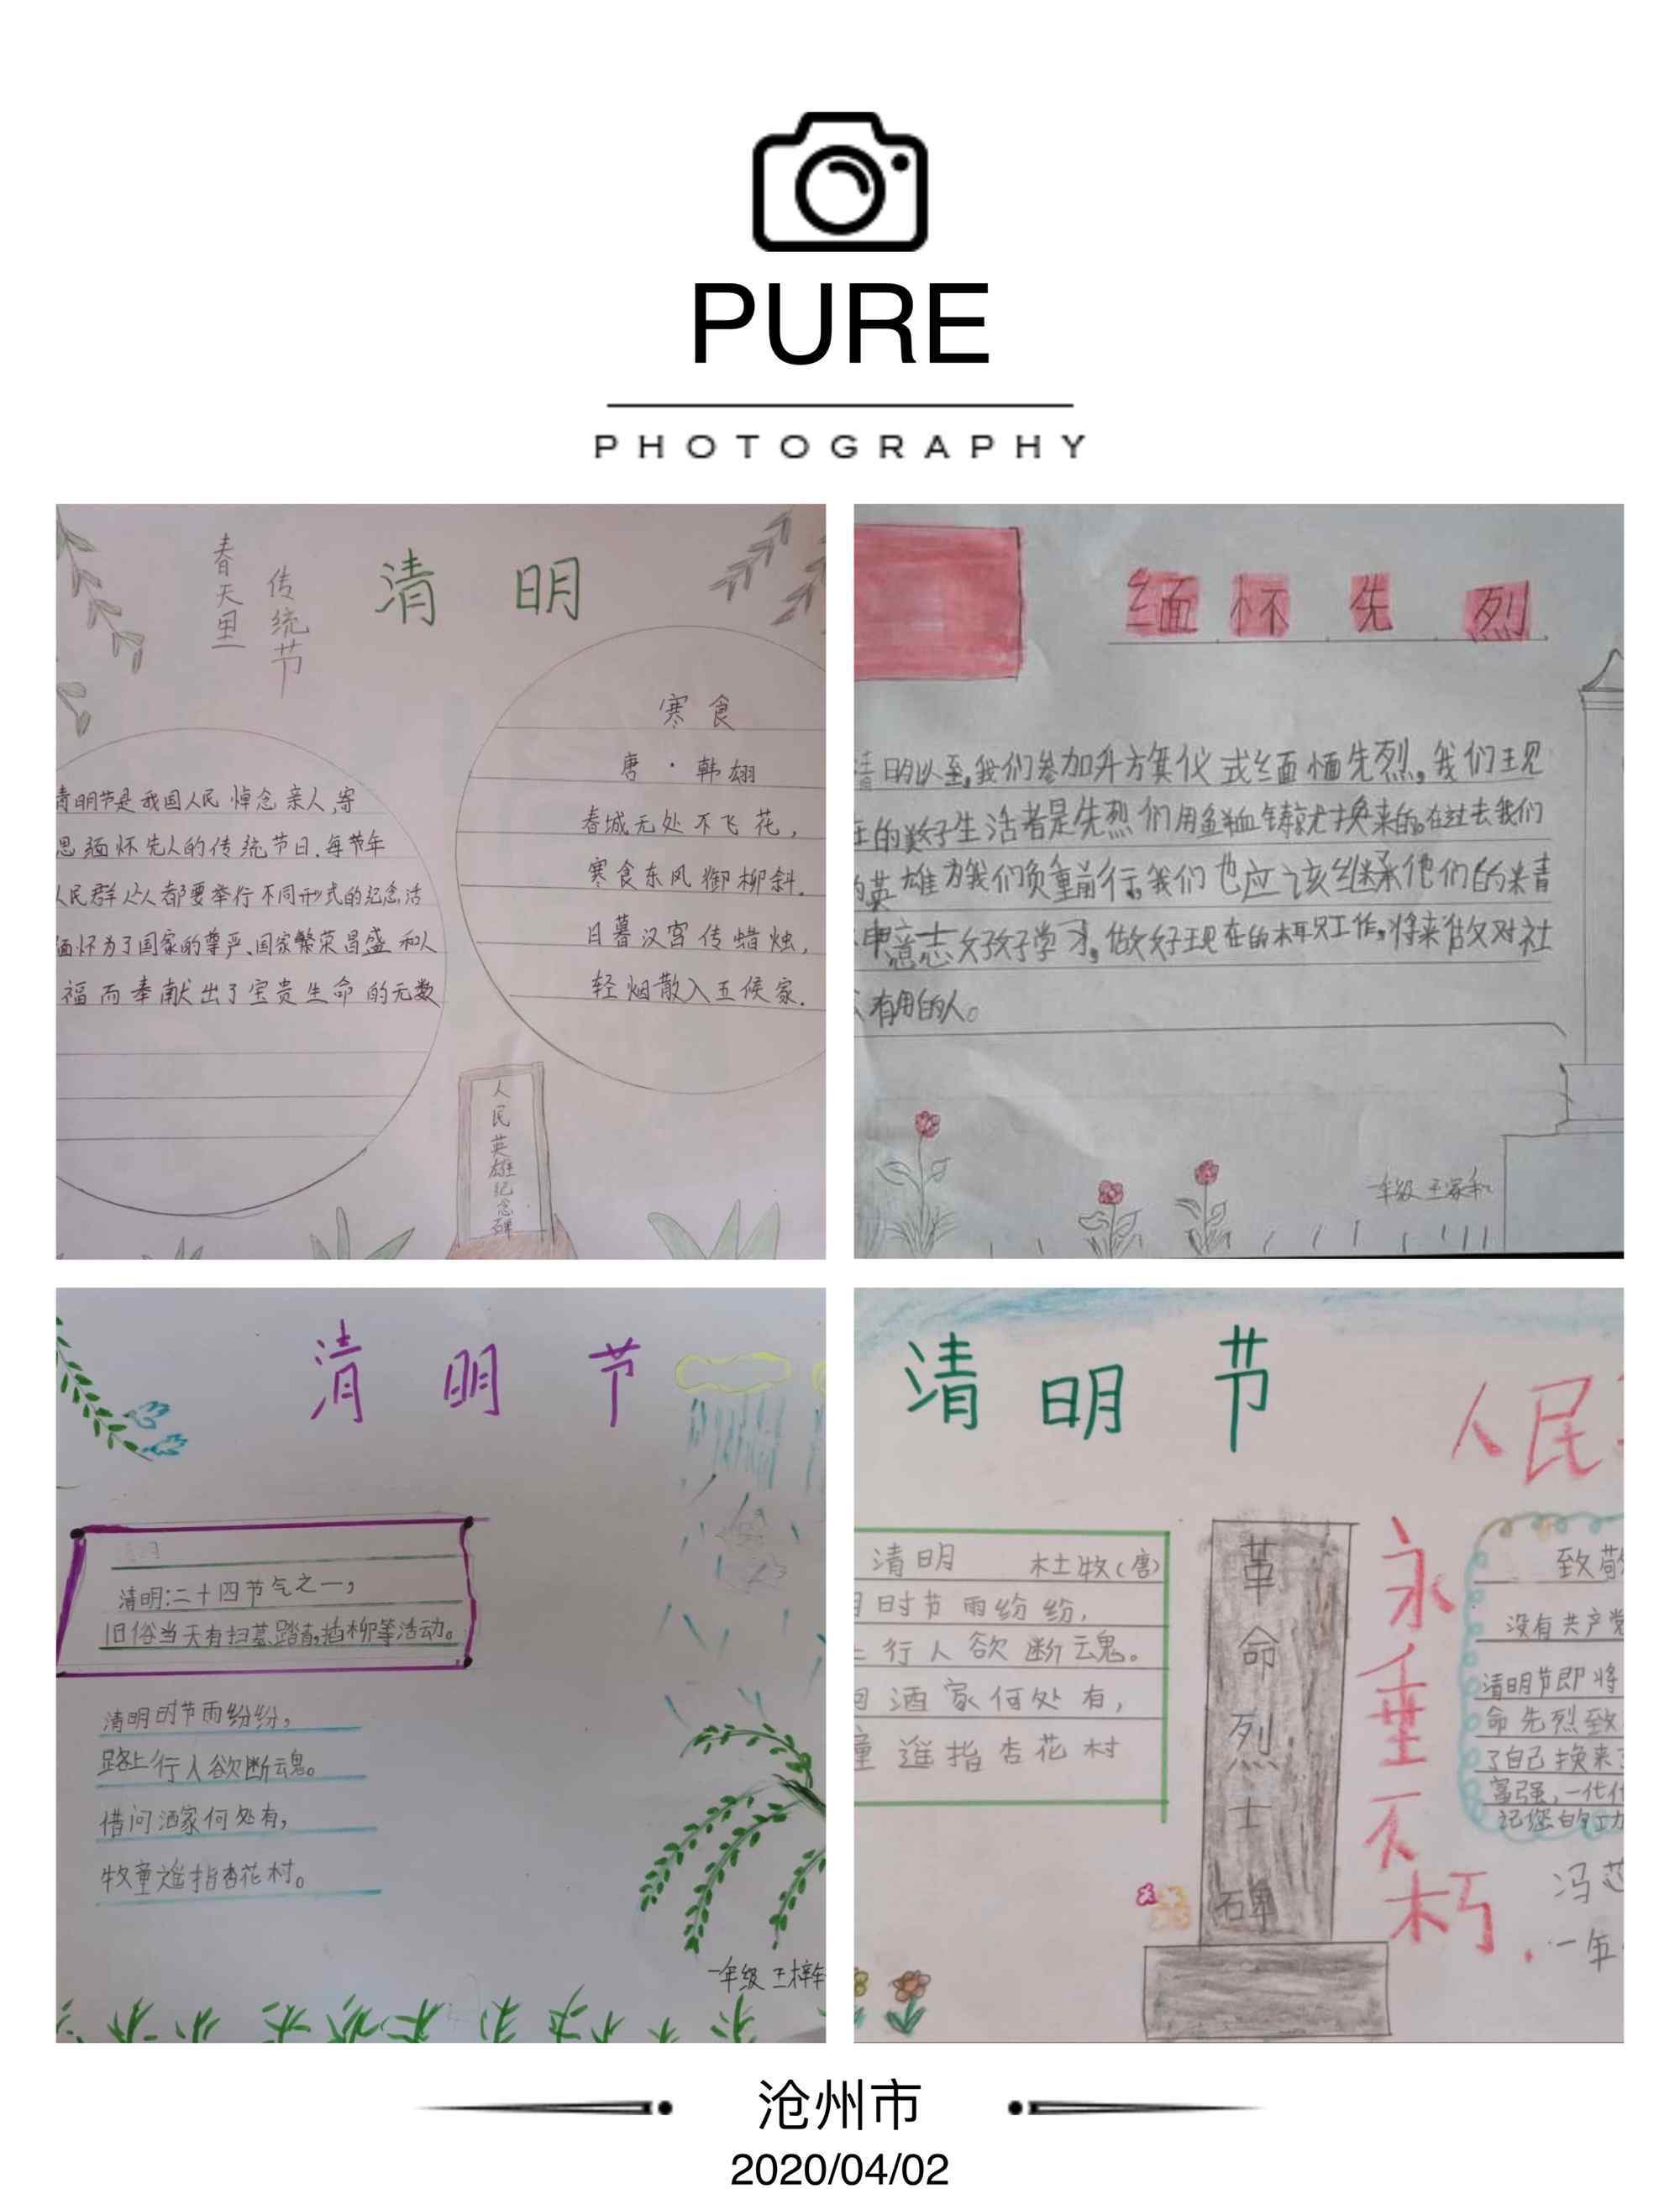 PURE
PHOTOGRAPHY
春天里
传统节
清明
寒食
唐·韩翃
春城无处不飞花,
寒食东风御柳斜.
日暮汉宫传蜡烛,
轻烟散入五侯家.
清明节是我国人民悼念亲人,寄
思缅怀先人的传统节日.每节年
人民群众人都要举行不同形式的纪念活
缅怀为了国家的尊严、国家繁荣昌盛和人
福而奉献出了宝贵生命的无数
人民英雄纪念碑
缅怀先烈
清明以至,我们参加升方旗仪式缅恼先烈。我们现
在的好生活者是先烈们用鲜血铸就换来的。在过去我们
的英雄为我们负重前行。我们也应该继承他们的精
神意志好好学习。做好现在的本职工作。将来做对社
有用的人。
一年级 王家和
清明节
清明:二十四节气之一,
旧俗当天有扫墓踏青,插柳等活动。
清明时节雨纷纷,
路上行人欲断魂。
借问酒家何处有,
牧童遥指杏花村。
一年级 王梓
清明节
人民
清明 杜牧(唐)
明时节雨纷纷,
上行人欲断魂。
问酒家何处有,
童遥指杏花村
革命烈士碑
永垂不朽.
致敬
没有共产党
清明节即将
命先烈致
了自己换来
富强,一代代
记您的功
冯
一年
沧州市
2020/04/02